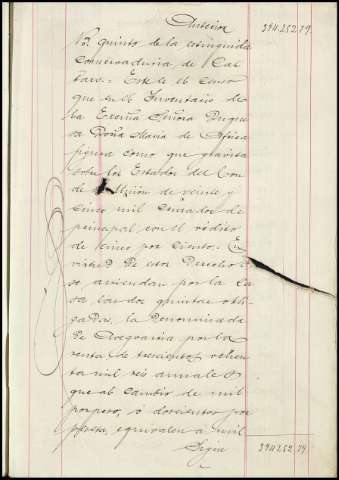 Anterior 394.252.79.
N.º quinto de la extinguida
Conservaduria de Cal
Este es el censo
que en el Inventario de
la Excma Señora Duque
sa Doña Maria de Africa
figura como que gravita
sobre los Estados del Con
de de veinte y
cinco mil cruzados de
principal con el rédito
de cinco por ciento. En
virtud de este Derecho
se arriendan por la Ca
sa, las dos quintas obli
gadas, la denominada
de por la
renta de trescientos ochen
ta mil reis anuales
que al cambio de mil
por peso, ó doscientos por
peseta, equivalen á mil
Sigue 394.252.79